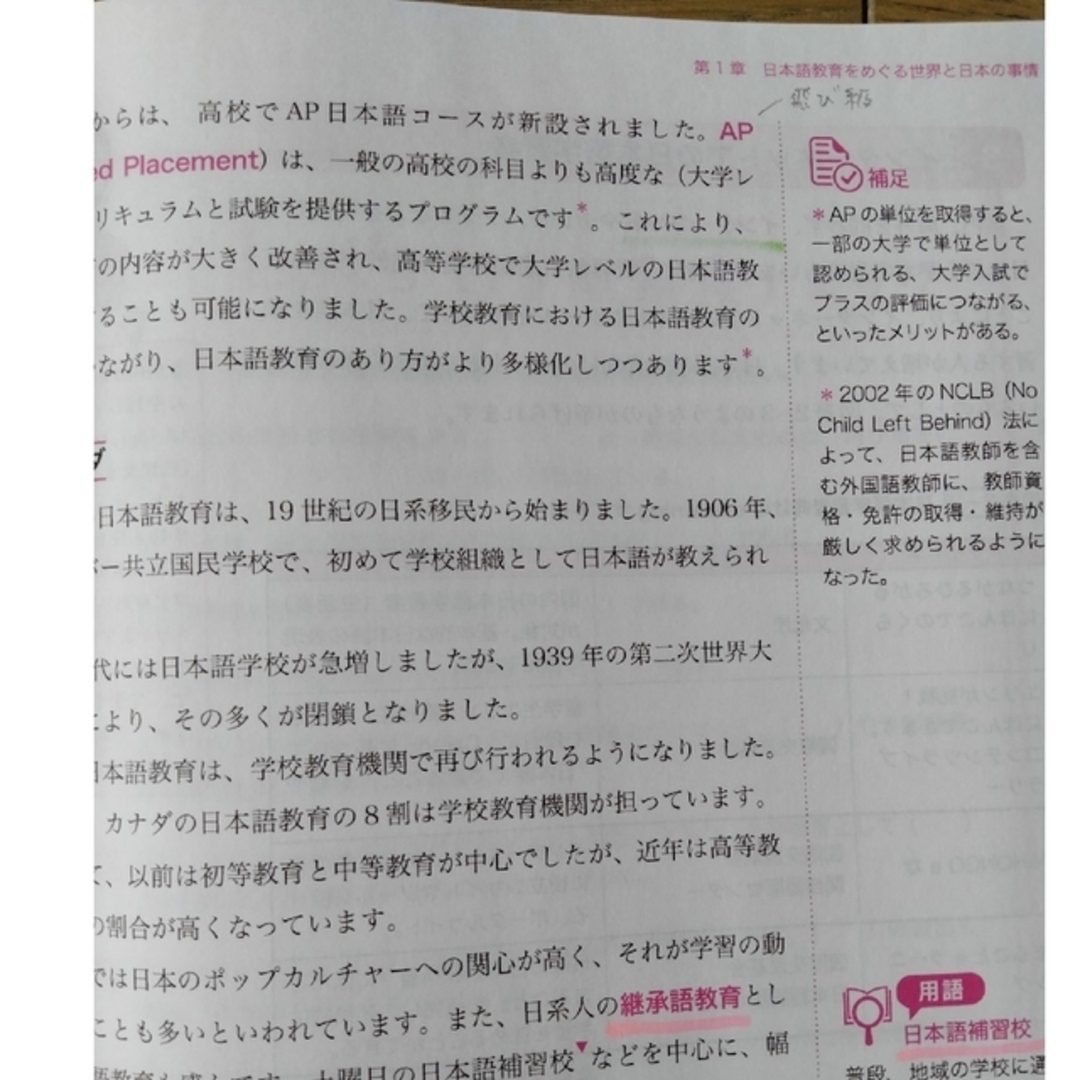 第1章 日本語教育をめぐる世界と日本の事情
飛び級
からは、高校でAP日本語コースが新設されました。AP
ed Placement）は、一般の高校の科目よりも高度な（大学レ
リキュラムと試験を提供するプログラムです*。これにより、
の内容が大きく改善され、高等学校で大学レベルの日本語教
ることも可能になりました。学校教育における日本語教育の
ながり、日本語教育のあり方がより多様化しつつあります*。
ダ
日本語教育は、19世紀の日系移民から始まりました。1906年、
バー共立国民学校で、初めて学校組織として日本語が教えられ
代には日本語学校が急増しましたが、1939年の第二次世界大
により、その多くが閉鎖となりました。
日本語教育は、学校教育機関で再び行われるようになりました。
カナダの日本語教育の8割は学校教育機関が担っています。
て、以前は初等教育と中等教育が中心でしたが、近年は高等教
の割合が高くなっています。
では日本のポップカルチャーへの関心が高く、それが学習の動
ことも多いといわれています。また、日系人の継承語教育とし
土曜日の日本語補習校▼などを中心に、幅
補足
*APの単位を取得すると、
一部の大学で単位として
認められる、大学入試で
プラスの評価につながる、
といったメリットがある。
*2002年のNCLB（No
Child Left Behind）法に
よって、日本語教師を含
む外国語教師に、教師資
格・免許の取得・維持が
厳しく求められるように
なった。
用語
日本語補習校
普段、地域の学校に通